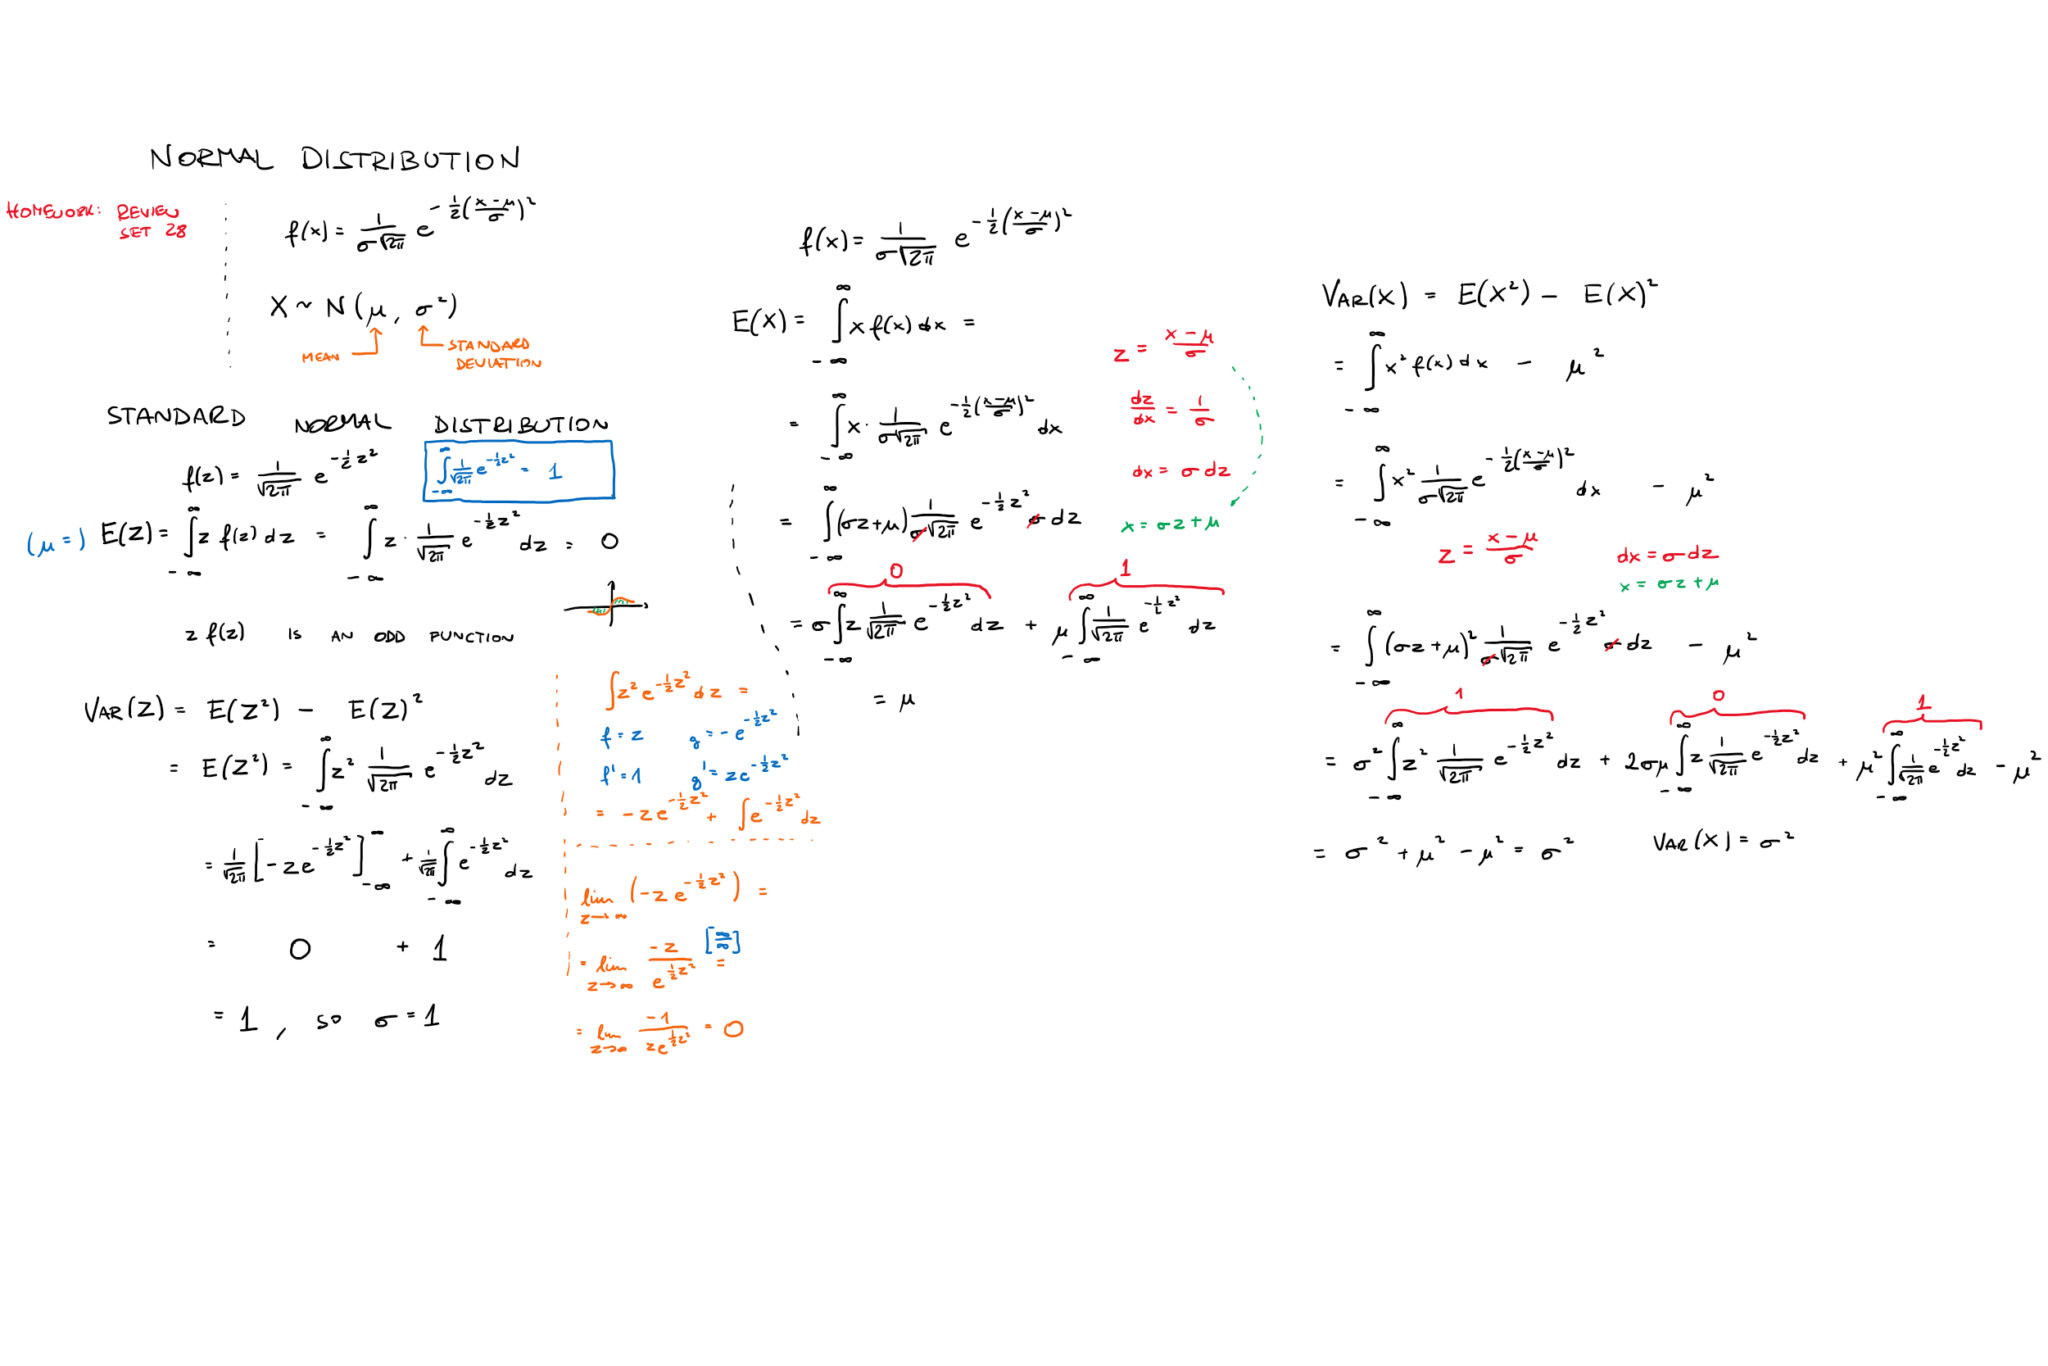 NORMAL DISTRIBUTION
HOMEWORK: REVIEW
SET 28
f(x) = 1/(σ√2π) e^(-½((x-μ)/σ)²)
X ~ N(μ, σ²)
MEAN
STANDARD
DEVIATION
STANDARD NORMAL DISTRIBUTION
f(z) = 1/√2π e^(-½z²)
∫_{-∞}^{∞} 1/√2π e^(-½z²) = 1
(μ=) E(Z) = ∫_{-∞}^{∞} z f(z) dz = ∫_{-∞}^{∞} z · 1/√2π e^(-½z²) dz = 0
z f(z) IS AN ODD FUNCTION
VAR(Z) = E(Z²) - E(Z)²
= E(Z²) = ∫_{-∞}^{∞} z² 1/√2π e^(-½z²) dz
= 1/√2π [-ze^(-½z²)]_{-∞}^{∞} + 1/√2π ∫_{-∞}^{∞} e^(-½z²) dz
= 0 + 1
= 1, so σ = 1
∫z² e^(-½z²) dz =
f = z g = -e^(-½z²)
f' = 1 g' = ze^(-½z²)
= -ze^(-½z²) + ∫e^(-½z²) dz
lim_{z→∞} (-z e^(-½z²)) =
= lim_{z→∞} -z/e^(½z²) [∞/∞] =
= lim_{z→∞} -1/(ze^(½z²)) = 0
f(x) = 1/(σ√2π) e^(-½((x-μ)/σ)²)
E(X) = ∫_{-∞}^{∞} x f(x) dx =
= ∫_{-∞}^{∞} x · 1/(σ√2π) e^(-½((x-μ)/σ)²) dx
= ∫_{-∞}^{∞} (σz+μ) 1/(σ√2π) e^(-½z²) σ dz
0 1
= σ ∫_{-∞}^{∞} z 1/√2π e^(-½z²) dz + μ ∫_{-∞}^{∞} 1/√2π e^(-½z²) dz
= μ
z = (x-μ)/σ
dz/dx = 1/σ
dx = σ dz
x = σz + μ
VAR(X) = E(X²) - E(X)²
= ∫_{-∞}^{∞} x² f(x) dx - μ²
= ∫_{-∞}^{∞} x² 1/(σ√2π) e^(-½((x-μ)/σ)²) dx - μ²
z = (x-μ)/σ dx = σ dz
x = σz + μ
= ∫_{-∞}^{∞} (σz+μ)² 1/(σ√2π) e^(-½z²) σ dz - μ²
1 0 1
= σ² ∫_{-∞}^{∞} z² 1/√2π e^(-½z²) dz + 2σμ ∫_{-∞}^{∞} z 1/√2π e^(-½z²) dz + μ² ∫_{-∞}^{∞} 1/√2π e^(-½z²) dz - μ²
= σ² + μ² - μ² = σ² VAR(X) = σ²